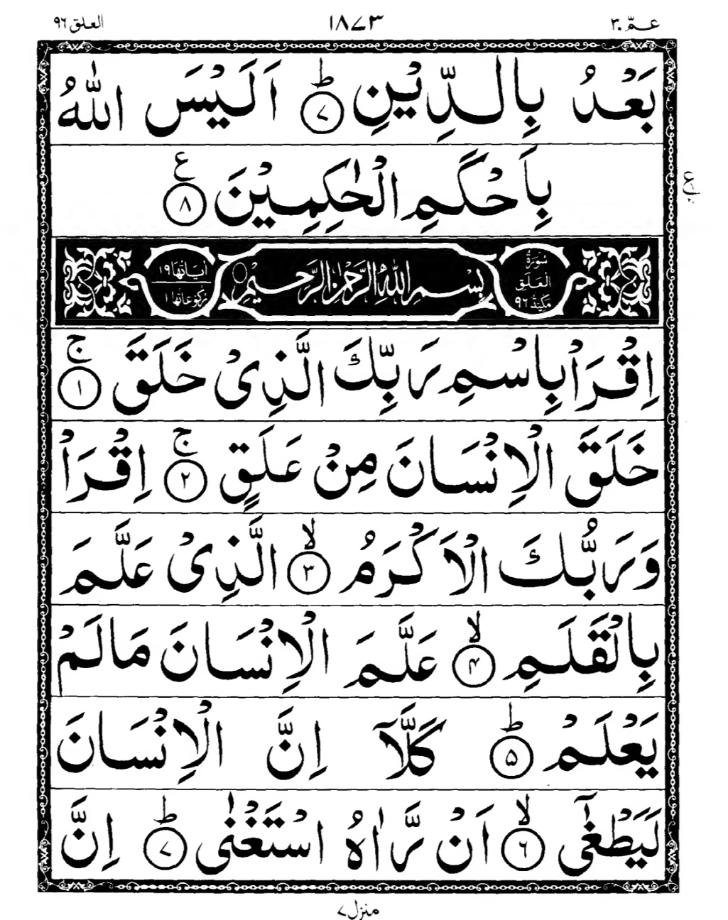 عمّ ٣٠ ١٨٧٣ العلق ٩٦
بَعْدُ بِالدِّيْنِ ؕ﴿۷﴾ اَلَيْسَ اللّٰهُ
بِاَحْكَمِ الْحٰكِمِيْنَ ﴿۸﴾ ع
سُوْرَةُ الْعَلَقِ مَكِّيَّةٌ ٩٦ بِسْمِ اللّٰهِ الرَّحْمٰنِ الرَّحِيْمِ اٰيَاتُهَا ١٩ رُكُوْعَاتُهَا ١
اِقْرَاْ بِاسْمِ رَبِّكَ الَّذِيْ خَلَقَ ۚ﴿۱﴾
خَلَقَ الْاِنْسَانَ مِنْ عَلَقٍ ۚ﴿۲﴾ اِقْرَاْ
وَرَبُّكَ الْاَكْرَمُ ۙ﴿۳﴾ الَّذِيْ عَلَّمَ
بِالْقَلَمِ ۙ﴿۴﴾ عَلَّمَ الْاِنْسَانَ مَالَمْ
يَعْلَمْ ؕ﴿۵﴾ كَلَّاۤ اِنَّ الْاِنْسَانَ
لَيَطْغٰۤى ۙ﴿۶﴾ اَنْ رَّاٰهُ اسْتَغْنٰى ؕ﴿۷﴾ اِنَّ
منزل ۷